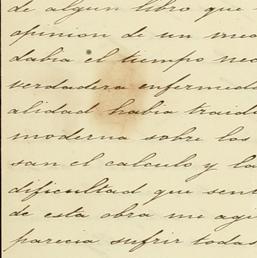 de algun libro que
opinion de un me
dabia el tiempo nec
verdadera enfermed
alidad habia traido
moderna sobre los
san el calculo y la
dificultad que sent
de esta obra me agi
parecia sufrir todas